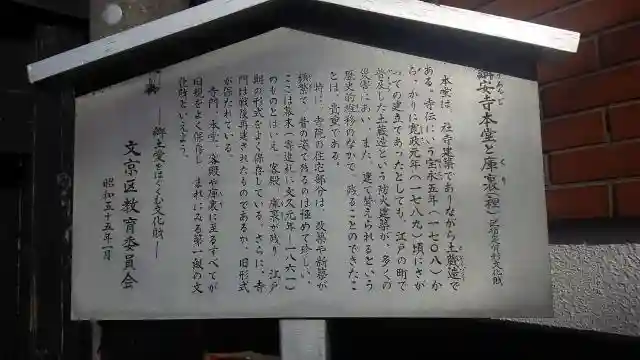 安寺本堂と庫裏(裡) 区指定有形文化財
本堂は、社寺建築でありながら土蔵造で
ある。寺伝にいう宝永五年(一七〇八)か
ら、かりに寛政元年(一七八九)頃にさが
っての建立であったとしても、江戸の町で
普及した土蔵造という防火建築が、多くの
災害にあい、また、建て替えられるという
歴史的推移のなかで、残ることのできたこ
とは、貴重である。
特に、寺院の住宅部分は、改築や新築が
頻繁で、昔の姿で残るのは極めて珍しい。
ここは幕末(寄進札に文久元年―一八六一)
のものとはいえ、客殿、庫裏が残り、江戸
期の形式をよく保存している。さらに、寺
門は戦後再建されたものであるが、旧形式
が保たれている。
寺門、本堂、客殿や庫裏に至るすべてが
旧観をよく保存し、まれにみる第一級の文
化財といえよう。
―郷土愛をはぐくむ文化財―
文京区教育委員会
昭和五十五年一月